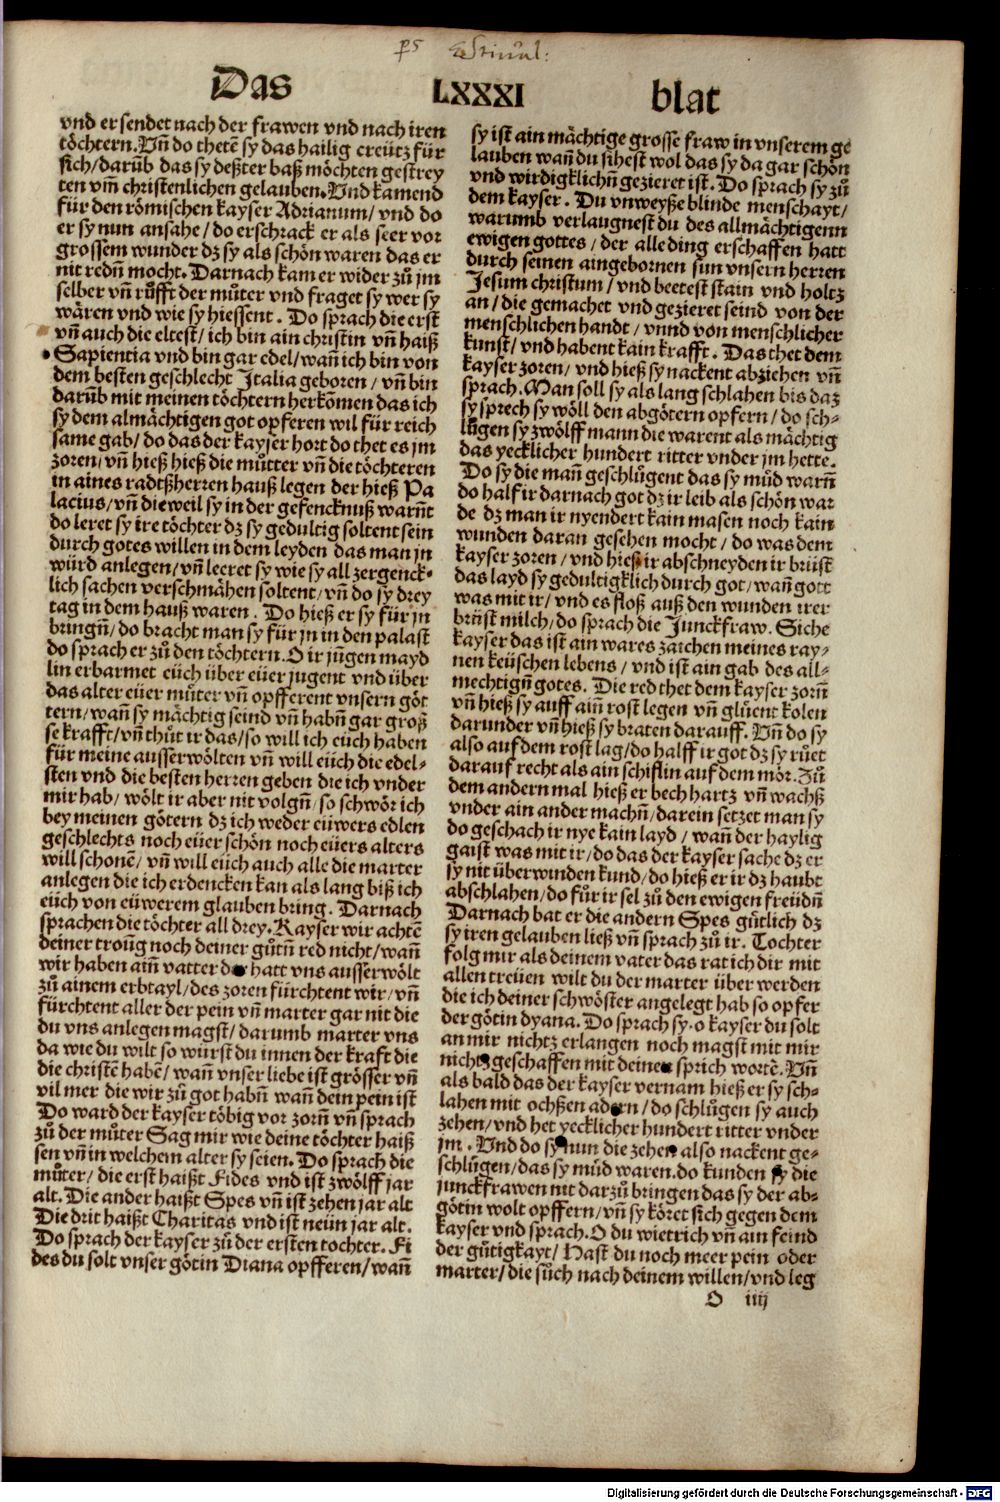 Das LXXXI blat
vnd er sendet nach der frawen vnd nach iren
töchtern. Vn̄ do thetē sy das hailig creütz für
sich/ darūb das sy deßter baß möchten gestrey
ten vm̄ christenlichen gelauben. Vnd kamend
für den römischen kayser Adrianum/ vnd do
er sy nun ansahe/ do erschrack er als seer vor
grossem wunder dz sy als schön waren das er
nit redn̄ mocht. Darnach kam er wider zů jm
selber vn̄ růfft der můter vnd fraget sy wer sy
wären vnd wie sy hiessent. Do sprach die erst
vn̄ auch die eltest/ ich bin ain christin vn̄ haiß
Sapientia vnd bin gar edel/ wan̄ ich bin von
dem besten geschlecht Italia geboren/ vn̄ bin
darūb mit meinen töchtern herkōmen das ich
sy dem almächtigen got opferen wil für reich
same gab/ do das der kayser hort do thet es jm
zoren/ vn̄ hieß hieß die můtter vn̄ die töchteren
in aines radtßherren hauß legen der hieß Pa
lacius/ vn̄ die weil sy in der gefencknuß warn̄t
do leret sy ire töchter dz sy gedultig soltent sein
durch gotes willen in dem leyden das man jn
würd anlegen/ vn̄ leeret sy wie sy all zergenck-
lich sachen verschmähen soltent/ vn̄ do sy drey
tag in dem hauß waren. Do hieß er sy für jn
bringn̄/ do bracht man sy für jn in den palast
do sprach er zů den töchtern. O ir jun̄gen mayd
lin erbarmet eüch über eüer jugent vnd über
das alter eüer můter vn̄ opfferent vnsern göt
tern/ wan̄ sy mächtig seind vn̄ habn̄ gar groß
se krafft/ vn̄ thůt ir das/ so will ich eüch haben
für meine ausserwölten vn̄ will eüch die edel-
sten vnd die besten herren geben die ich vnder
mir hab/ wölt ir aber nit volgn̄/ so schwör ich
bey meinen götern dz ich weder eüwers edlen
geschlechts noch eüer schön noch eüers alters
will schonē/ vn̄ will eüch auch alle die marter
anlegen die ich erdencken kan als lang biß ich
eüch von eüwerem glauben bring. Darnach
sprachen die töchter all drey. Kayser wir achtē
deiner troun̄g noch deiner gůtn̄ red nicht/ wan̄
wir haben aim̄ vatter d hatt vns ausserwölt
zů ainem erbtayl/ des zoren fürchtent wir/ vn̄
fürchtent aller der pein vn̄ marter gar nit die
du vns anlegen magst/ darumb marter vns
da wie du wilt so würst du innen der kraft die
die christē habē/ wan̄ vnser liebe ist grösser vn̄
vil mer die wir zů got habn̄ wan̄ dein pein ist
Do ward der kayser töbig vor zorn̄ vn̄ sprach
zů der můter Sag mir wie deine töchter haiß
sen vn̄ in welchem alter sy seien. Do sprach die
můter/ die erst haißt Fides vnd ist zwölff jar
alt. Die ander haißt Spes vn̄ ist zehen jar alt
Die drit haißt Charitas vnd ist neün jar alt.
Do sprach der kayser zů der ersten tochter. Fi
des du solt vnser götin Diana opfferen/ wan̄
sy ist ain mächtige grosse fraw in vnserem ge
lauben wan̄ du sihest wol das sy da gar schön
vnd wirdigklichn̄ gezieret ist. Do sprach sy zů
dem kayser. Du vnweyße blinde menschayt/
warumb verlaugnest du des allmächtigenn
ewigen gottes/ der alle ding erschaffen hatt
durch seinen aingebornen sun vnsern herren
Jesum christum/ vnd beetest stain vnd holtz
an/ die gemachet vnd gezieret seind von der
menschlichen handt/ vnnd von menschlicher
kunst/ vnd habent kain krafft. Das thet dem
kayser zoren/ vnd hieß sy nackent abziehen vn̄
sprach. Man soll sy als lang schlahen bis daz
sy sprech sy wöll den abgötern opfern/ do sch-
lůgen sy zwölff mann die warent als mächtig
das yecklicher hundert ritter vnder jm hette.
Do sy die man̄ geschlůgent das sy müd warn̄
do half ir darnach got dz ir leib als schön war
de dz man ir nyendert kain masen noch kain
wunden daran gesehen mocht/ do was dem
kayser zoren/ vnd hieß ir abschneyden ir brüst
das layd sy gedultigklich durch got/ wan̄ gott
was mit ir/ vnd es floß auß den wunden irer
brüst milch/ do sprach die Junckfraw. Siche
kayser das ist ain wares zaichen meines ray-
nen keüschen lebens/ vnd ist ain gab des all-
mechtign̄ gotes. Die red thet dem kayser zorn̄
vn̄ hieß sy auff aim̄ rost legen vn̄ glüent kolen
darunder vn̄ hieß sy braten darauff. Vn̄ do sy
also auf dem rost lag/ do halff ir got dz sy růet
darauf recht als ain schiflin auf dem mör. Zů
dem andern mal hieß er bech hartz vn̄ wachß
vnder ain ander machn̄/ darein setzet man sy
do geschach ir nye kain layd/ wan̄ der haylig
gaist was mit ir/ do das der kayser sache dz er
sy nit überwinden kund/ do hieß er ir dz haubt
abschlahen/ do fůr ir sel zů den ewigen freüdn̄
Darnach bat er die andern Spes gůtlich dz
sy iren gelauben ließ vn̄ sprach zů ir. Tochter
folg mir als deinem vater das rat ich dir mit
allen treüen wilt du der marter über werden
die ich deiner schwöster angelegt hab so opfer
der götin dyana. Do sprach sy. o kayser du solt
an mir nichtz erlangen noch magst mit mir
nichtz geschaffen mit deine sprich wortē. Vn̄
als bald das der kayser vernam hieß er sy sch-
lahen mit ochßen adern/ do schlůgen sy auch
zehen/ vnd het yecklicher hundert ritter vnder
jm. Vnd do sy nun die zehen also nackent ge-
schlůgen/ das sy müd waren. do kunden sy die
junckfrawen nit darzů bringen das sy der ab-
götin wolt opffern/ vn̄ sy köret sich gegen dem
kayser vnd sprach. O du wietrich vn̄ ain feind
der gůtigkayt/ Hast du noch meer pein oder
marter/ die sůch nach deinem willen/ vnd leg
O iiij
Digitalisierung gefördert durch die Deutsche Forschungsgemeinschaft - DFG